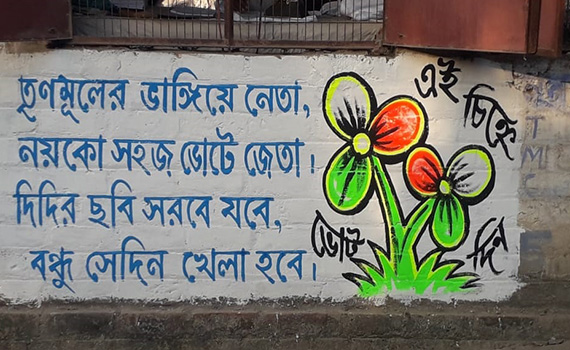 তৃণমূলের ভাঙ্গিয়ে নেতা,
নয়কো সহজ ভোটে জেতা।
দিদির ছবি সরবে যবে,
বন্ধু সেদিন খেলা হবে।
এই চিহ্নে
ভোট দিন
TMC